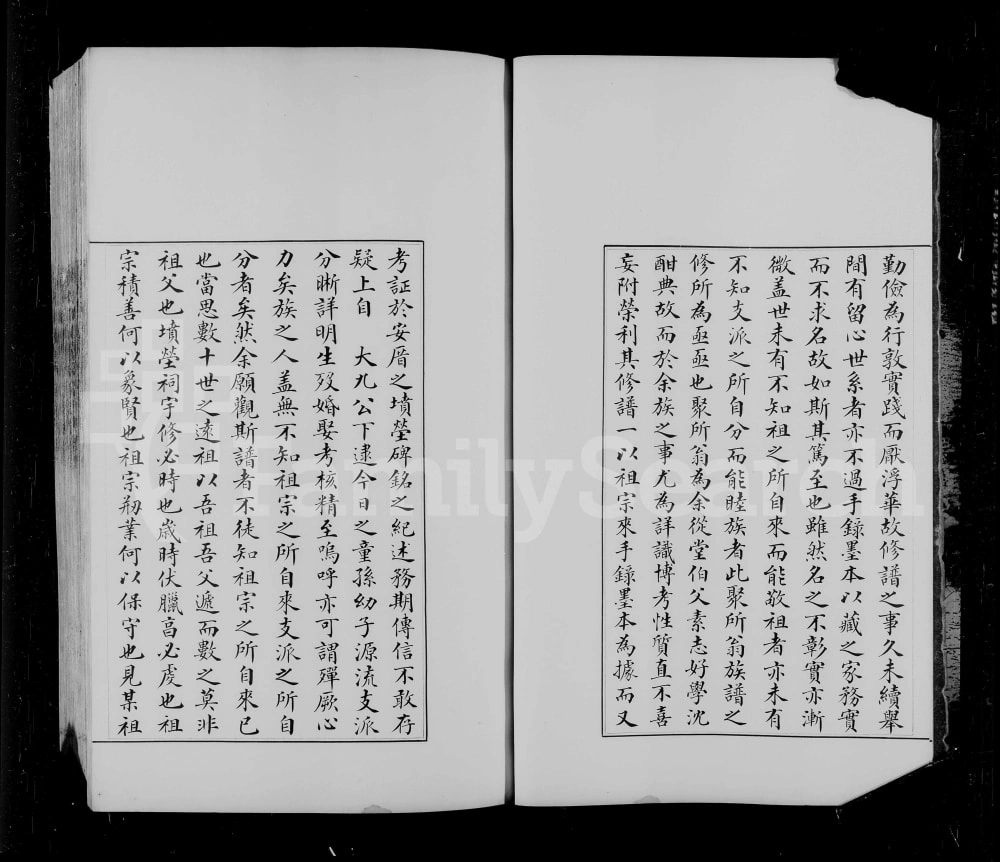 勤儉為行敦實踐而厭浮華故修譜之事久未續舉
間有留心世系者亦不過手錄墨本以藏之家務實
而不求名故如斯其篤至也雖然名之不彰實亦漸
微蓋世未有不知祖之所自來而能敬祖者亦未有
不知支派之所自分而能睦族者此聚所翁族譜之
修所為亟亟也聚所翁為余從堂伯父素志好學沈
酣典故而於余族之事尤為詳識博考性質直不喜
妄附榮利其修譜一以祖宗來手錄墨本為據而又
考証於安厝之墳塋碑銘之紀述務期傳信不敢存
疑上自 大九公下逮今日之童孫幼子源流支派
分晰詳明生歿婚娶考核精至嗚呼亦可謂殫厥心
力矣族之人蓋無不知祖宗之所自來支派之所自
分者矣然余願觀斯譜者不徒知祖宗之所自來已
也當思數十世之遠祖以吾祖吾父遞而數之莫非
祖父也墳塋祠宇修必時也歲時伏臘亯必虔也祖
宗積善何以象賢也祖宗刱業何以保守也見某祖
FamilySearch